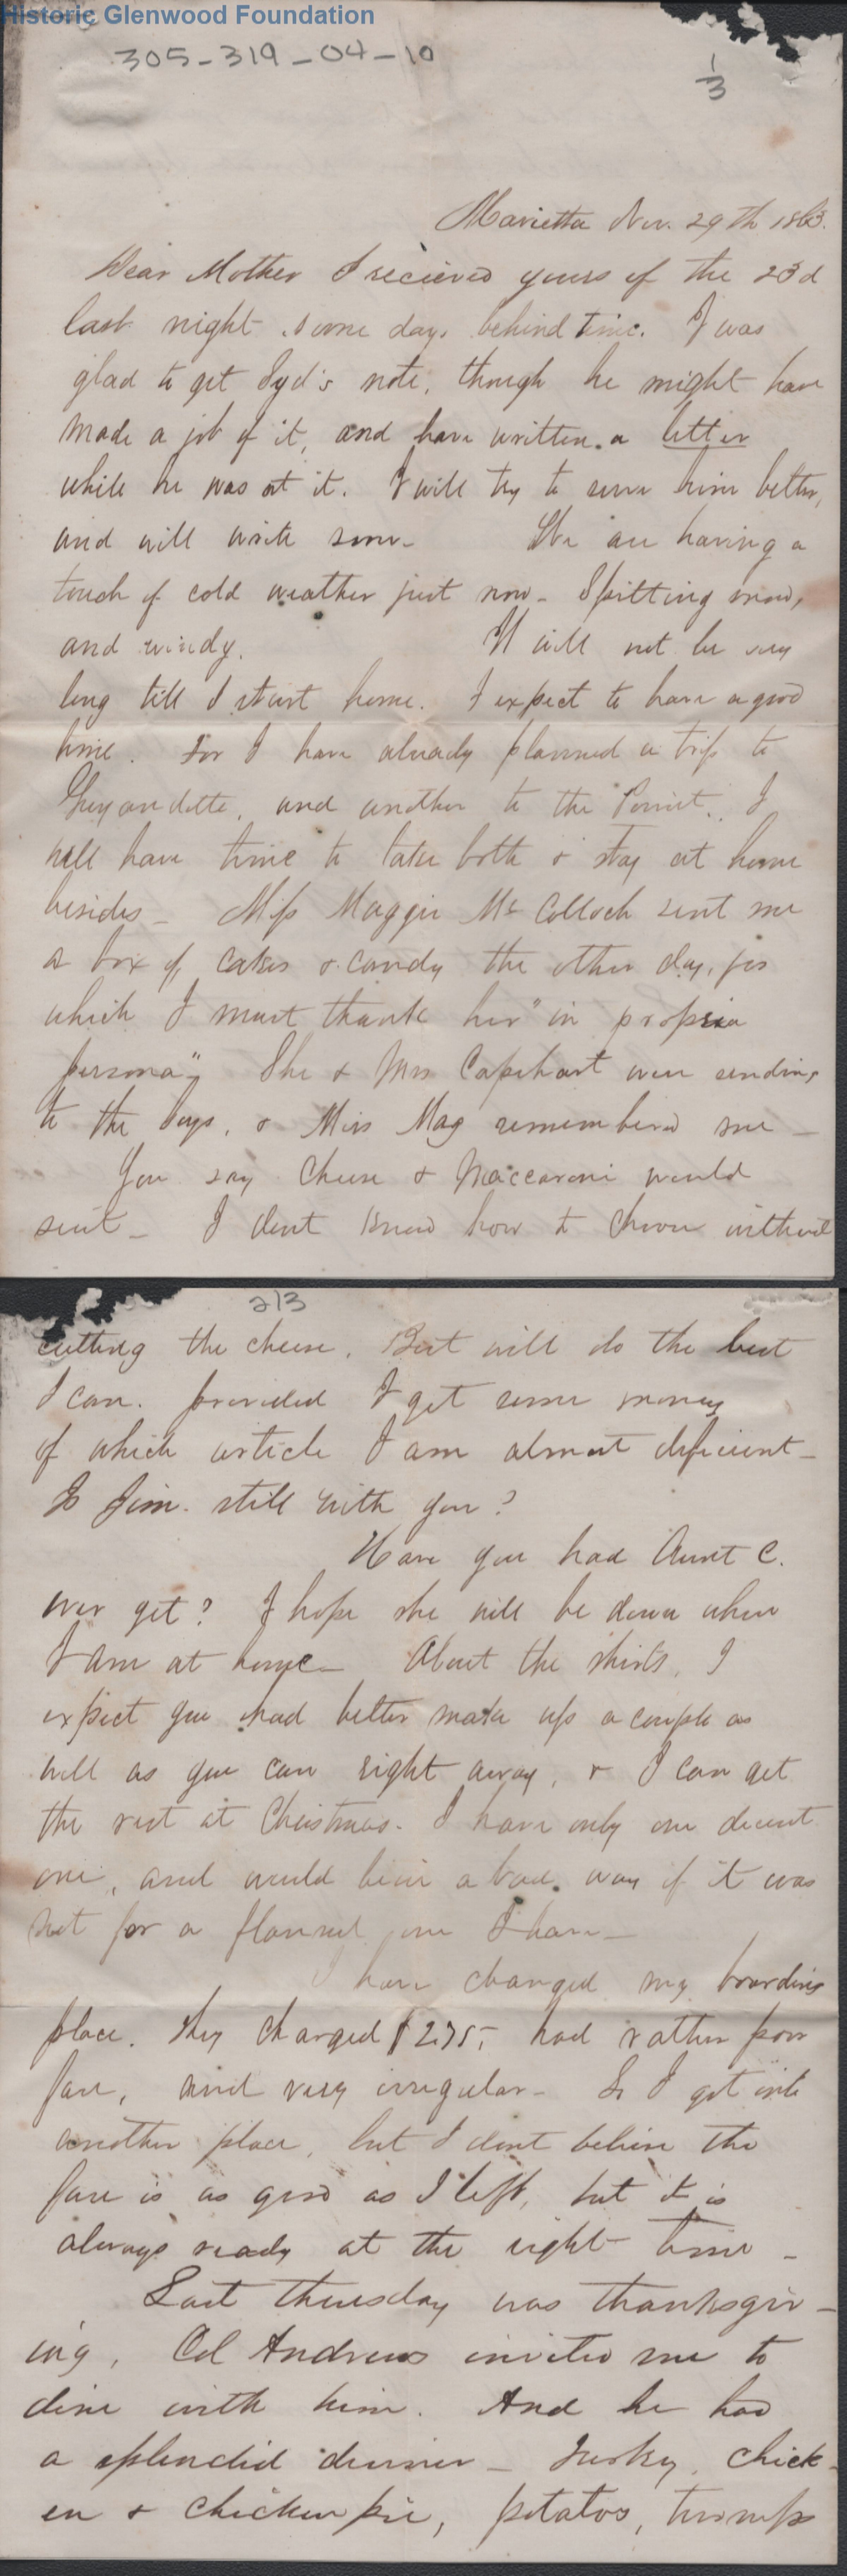 Historic Glenwood Foundation
305-319-04-10
1/3
Marietta Nov. 29th 1863.
Dear Mother I recieved yours of the 23d
last night some days behind time. I was
glad to get Syd's note, though he might have
made a job of it, and have written a letter
while he was at it. I will try to serve him better,
and will write soon- We are having a
touch of cold weather just now- Spitting snow,
and windy. It will not be very
long till I start home. I expect to have a good
time. For I have already planned a trip to
Guyandotte, and another to the Point. I
will have time to take both & stay at home
besides- Miss Maggie McColloch sent me
a box of cakes & candy the other day, for
which I must thank her "in propria
persona" She & Mrs Capehart were sending
to the boys, & Miss Mag remembered me -
You say Cheese & Maccaroni would
suit- I dont know how to choose without
2/3
cutting the cheese. But will do the best
I can. provided I get some money
of which article I am almost deficient-
Is Jim. still with you?
Have you had Aunt C.
over yet? I hope she will be down when
I am at home- About the shirts, I
expect you had better make up a couple as
well as you can right away, & I can get
the rest at Christmas- I have only one decent
one, and would be in a bad way if it was
not for a flannel one I have-
I have changed my boarding
place. They charged $2.75, had rather poor
fare, and very irregular- So I got into
another place, but I dont believe the
fare is as good as I left, but it is
always ready at the right time -
Last thursday was thanksgiv-
ing, Col Andrews invited me to
dine with him. And he had
a splendid dinner- Turky, chick-
en & chicken pie, potatos, turnips